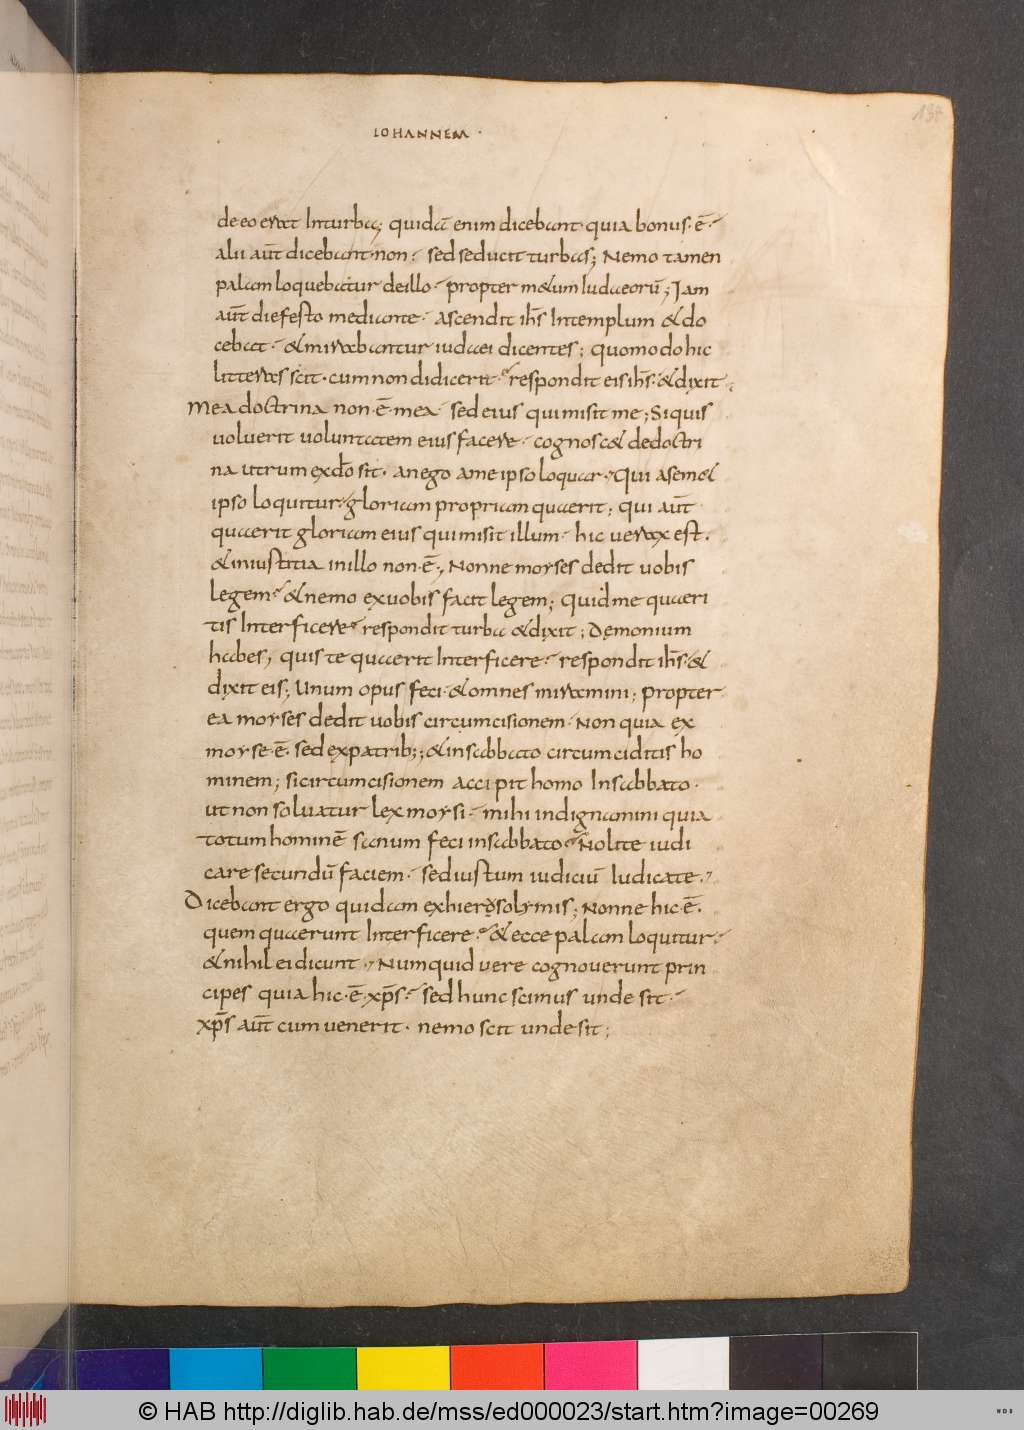 IOHANNEM ·
137
de eo erat Inturba; quidā enim dicebant quia bonus · ē ·
alii aūt dicebant · non · sed seducit turbas; Nemo tamen
palam loquebatur deillo · propter m&um Iudaeorū; Iam
aūt diefesto mediante · ascendit ihs Intemplum & do
cebat · & mirabantur iudaei dicentes; quomodo hic
litteras scit · cum non didicerit · respondit eis ihs · & dixit ·
Mea doctrina non · ē · mea · sed eius qui misit me; Siquis
uoluerit uoluntatem eius facere · cognosc& dedoctri
na utrum exdo sit · an ego ame ipso loquar · Qui asem&
ipso loquitur · gloriam propriam quaerit; qui aūt
quaerit gloriam eius qui misit illum · hic uerax est ·
& iniustitia inillo non · ē · Nonne moyses dedit uobis
legem · & nemo exuobis facit legem; Quid me quaeri
tis Interficere · respondit turba & dixit; Demonium
habes, quis te quaerit Interficere · respondit ihs · &
dixit eis; Unum opus feci · & omnes miramini; propter
ea moyses dedit uobis circumcisionem · Non quia ex
moyse · ē · sed expatrib;; & insabbato circumciditis ho
minem; si circumcisionem accipit homo Insabbato ·
ut non soluatur lex moysi · mihi indignamini quia
totum hominē sanum feci insabbato · Nolite iudi
care secundū faciem · sed iustum iudiciū Iudicate ·
Dicebant ergo quidam exhierosolymis; Nonne hic · ē ·
quem quaerunt Interficere · & ecce palam loquitur ·
& nihil ei dicunt · Numquid uere cognouerunt prin
cipes quia hic · ē · xps · sed hunc scimus unde sit ·
xps aūt cum uenerit · nemo scit unde sit;
© HAB http://diglib.hab.de/mss/ed000023/start.htm?image=00269